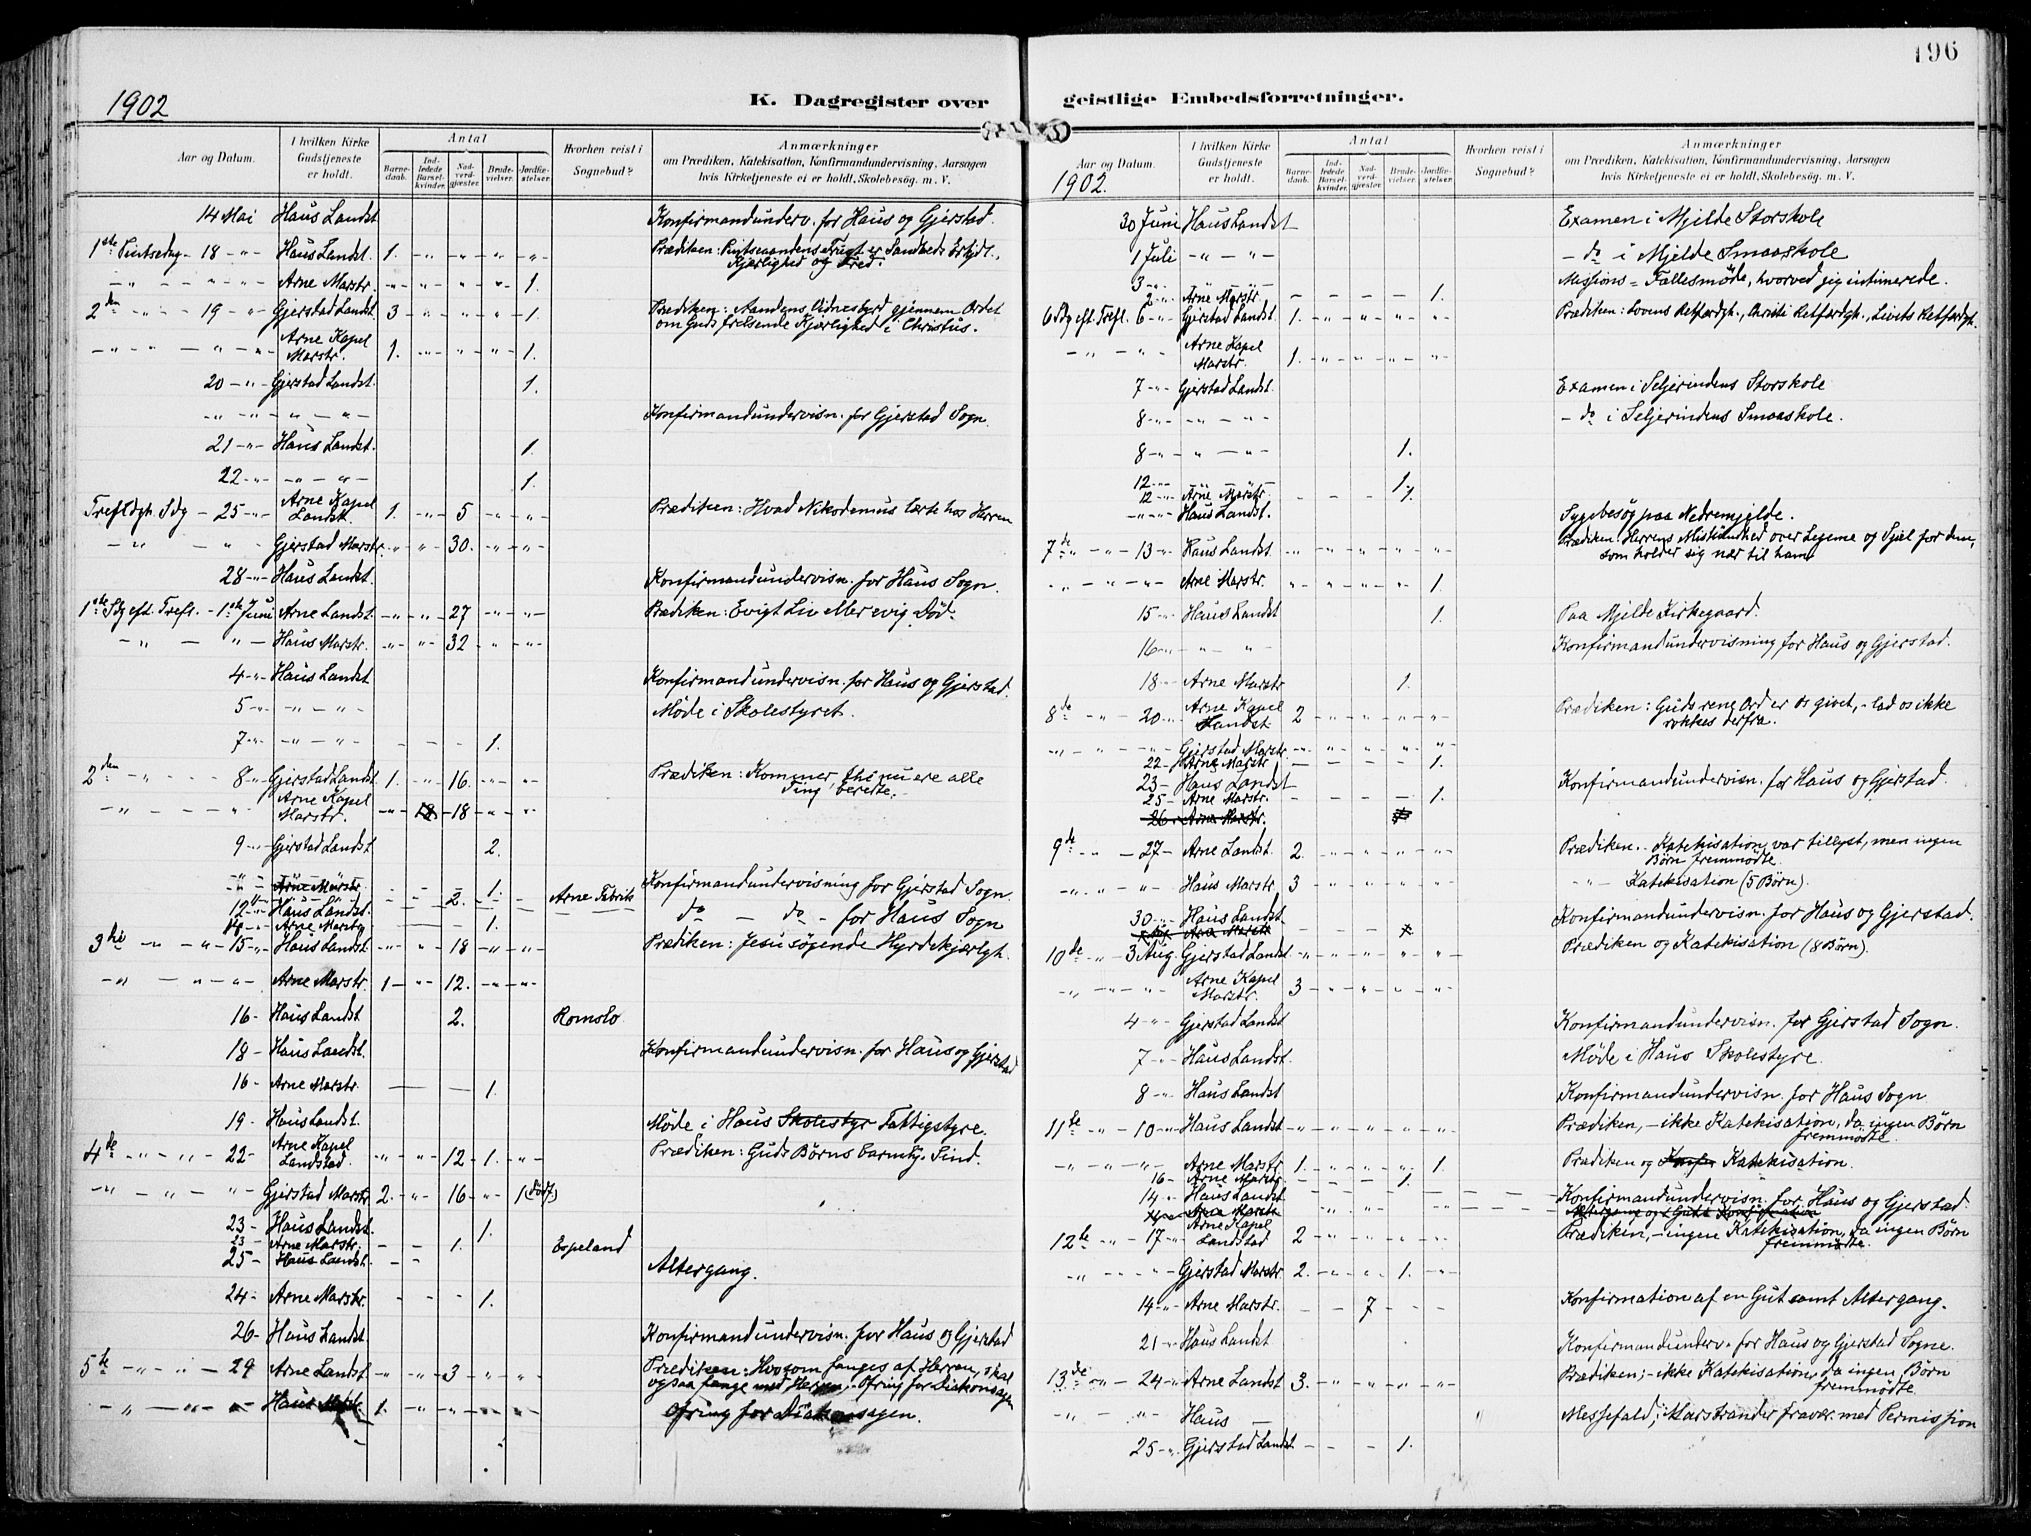 196
1902
K. Dagregister over
geistlige Embedsforretninger.
Aar og Datum.
I hvilken Kirke Gudstjeneste er holdt.
Antal
Barne-daab.
Ind-ledede Barsel-kvinder.
Nad-verd-gjæster.
Brude-vielser.
Jordfæ-stelser.
Hvorhen reist i Sognebud?
Anmærkninger
om Prædiken, Katekisation, Konfirmandundervisning, Aarsagen
hvis Kirketjeneste ei er holdt, Skolebesøg. m. V.
14 Mai Haus Landst Konfirmandunderv. for Haus og Gjerstad.
1ste Pintsedag - 18 -"- Haus Landst. 1. -"- -"- -"- -"- Prædiken: Pintseaandens Frugt er Sandhed
Kjærlighed og Fred.
-"- Arne Marstr. -"- -"- -"- -"- 1.
2den -"- 19 -"- Gjerstad Landst. 3 -"- -"- -"- 1. Prædiken: Aandens Vidnesbyrd gjennem Ordet
om Guds frelsende Kjærlighed i Christus.
-"- Arne Kapel Marstr. 1. -"- -"- -"- 1.
20 -"- Gjerstad Landst. 1.
-"- -"- -"- Konfirmandundervisn. for Gjerstad Sogn.
21 -"- Haus Landst. 1.
22 -"- -"- -"- 1.
Trefldgh. Sdg - 25 -"- Arne Kapel Landst. 1. -"- 5 -"- -"- Prædiken: Hvad Nikodemus lærte hos Herren
-"- -"- Gjerstad Marstr. -"- -"- 30. -"- -"-
28 -"- Haus Landst. Konfirmandundervisn. for Haus Sogn.
1ste Sdg eft. Trefl. - 1ste Juni Arne Landst. -"- -"- 27 -"- -"- Prædiken: Evigt Liv eller evig Død.
-"- -"- Haus Marstr. -"- -"- 32 -"- -"-
4 -"- Haus Landst Konfirmandundervisn. for Haus og Gjerstad.
5 -"- -"- -"- Møde i Skolestyret.
7 -"- -"- -"- - - - 1.
2den -"- 8 -"- Gjerstad Landst. 1. -"- 16. -"- -"- Prædiken: Kommer, thi nu ere alle
Ting berette.
-"- -"- Arne Kapel Marstr. -"- 18 -18 -"- -"-
9 -"- Gjerstad Landst. 2.
-"- Arne Marstr. - - 2. 1. - Arne Fabrik Konfirmandundervisning for Gjerstad Sogn.
12 -"- Haus Landst. do - do - for Haus Sogn
14 -"- Arne Marstr. - - - 1.
3die -"- 15 -"- Haus Landst. -"- -"- 18 -"- -"- Prædiken: Jesu søgende Hyrdekjærlgh.
-"- -"- Arne Marstr. 1 - -"- 12. -"- -"-
16 - Haus Landst 2. Romslo
18 - Haus Landst. Konfirmandundervisn. for Haus og Gjerstad
16 - Arne Marstr. - - 1.
19 - Haus Landst. Møde i Haus Skolestyr Fattigstyre.
4de -"- 22 - Arne Kapel Landstad. -"- -"- 12 - 1. -"- Prædiken: Guds Børns barmhj. Sind.
-"- -"- Gjerstad Marstr. 2. -"- 16 -"- 1
23 - Haus Landst. 1.
23 - Arne Marstr. - - 1. Espeland
25 - Haus Landst. - - Altergang.
24 - Arne Marstr. - - - 1.
26 - Haus Landst. Konfirmandundervisn. for Haus og Gjerstad
5te -"- 29 Arne Landst. -"- -"- 3 -"- -"- Prædiken: Hvo som fanges af Herren, skal
ogsaa fange med Herren. - Ofring for Diakonsagen
-"- -"- Haus 1. -"- -"- -"- -"- Ofring for Diakonsagen.
Aar og Datum.
1902.
I hvilken Kirke Gudstjeneste er holdt.
Antal
Barne-daab.
Ind-ledede Barsel-kvinder.
Nad-verd-gjæster.
Brude-vielser.
Jordfæ-stelser.
Hvorhen reist i Sognebud?
Anmærkninger
om Prædiken, Katekisation, Konfirmandundervisning, Aarsagen
hvis Kirketjeneste ei er holdt, Skolebesøg. m. V.
30 Juni Haus Landst Examen i Mjelde Storskole
1 Juli -"- -"- - do i Mjelde Smaaskole
3 -"- -"- -"- Missions-Fællesmøde, hvorved jeg intimerede.
2 -"- Arne Marstr. - - - - 1.
6 Sdg eft. Trefl. 6 -"- Gjerstad Landst. 1. -"- -"- -"- -"- Prædiken: Lovens Retfærdgh., Christi Retfærdgh., Livets Retfærdgh.
-"- -"- Arne Kapel Marstr. 1. -"- -"- -"- -"-
7 -"- Gjerstad Landst. Examen i Seljerindens Storskole
8 -"- -"- -"- - do i Seljerindens Smaaskole.
8 -"- -"- -"- 1.
12 -"- -"- -"- 1.
12 -"- Arne Marstr. - - - 1.
-"- Haus Landst. Sygebesøg paa Nedremjelde.
7de -"- 13 -"- Haus Landst -"- -"- -"- -"- -"- Prædiken Herrens Miskundhed over Legeme og Sjæl for dem,
som holder sig nær til ham
-"- -"- Arne Marstr. -"- -"- -"- -"- 1.
15 -"- Haus Landst 1. Paa Mjelde Kirkegaard.
16 -"- -"- -"- Konfirmandundervisning for Haus og Gjerstad.
18 -"- Arne Marstr 1.
8de -"- 20 -"- Arne Kapel Landst. 2 -"- -"- -"- -"- Prædiken: Guds rene Ord er os givet, - lad os ikke
rokkes derfra.
-"- -"- Gjerstad Marstr. -"- -"- -"- -"- -"-
22 - Arne Marstr - - - - 1.
23 - Haus Landst Konfirmandundervisn. for Haus og Gjerstad.
25 - Arne Marstr. - - - - 1.
26 - Arne Marstr.
9de -"- - 27 - Arne Landst. 2. -"- -"- -"- -"- Prædiken. - Katekisation var tillyst, men ingen
Børn fremmødte.
-"- -"- Haus Marstr. 3 -"- -"- -"- -"- -"- Katekisation (5 Børn).
30 -"- Haus Landst Konfirmandundervisn. for Haus og Gjerstad.
Arne Marstr
10de -"- 3 Aug. Gjerstad Landst -"- -"- -"- -"- -"- Prædiken og Katekisation (8 Børn).
-"- -"- Arne Kapel Marstr. 3 -"- -"- -"- -"-
4 -"- Gjerstad Landst Konfirmandundervisn. for Gjerstad Sogn.
7 -"- Haus Landst. Møde i Haus Skolestyre.
8 -"- Haus Landst Konfirmandundervisn. for Haus Sogn
11te -"- 10 -"- Haus Landst -"- -"- -"- -"- -"- Prædiken, - ikke Katekisation, da ingen Børn
fremmødte.
-"- -"- Arne Marstr 1. -"- -"- -"- 1. Prædiken og Konfir Katekisation.
16 - Arne Marstr. -"- -"- -"- 1.
14 -"- Haus Landst - - - - - Konfirmandundervisn. for Haus og Gjerstad.
Arne Marstr
12te -"- 17 -"- Arne Kapel Landstad 2 -"- -"- -"- -"- Prædiken, - ingen Katekisation, da ingen Børn
fremmødte.
-"- -"- Gjerstad Marstr. 2. -"- -"- 1. -"-
14 -"- Arne Marstr. - - 7 - - Konfirmation af en Gut samt Altergang.
21 -"- Haus Landst Konfirmandunderv. for Haus og Gjerstad Sogne.
13de -"- 24 -"- Arne Landst 3. -"- -"- -"- -"- Prædiken; - ikke Katekisation, da ingen Børn
fremmødte.
-"- -"- Haus - Messefald, i Marstrander fravær. med Permission
25 -"- Gjerstad Landst - - - 1.